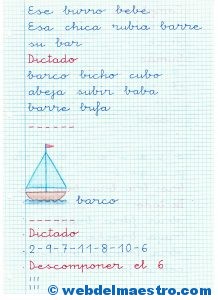 Ese burro bebe
Esa chica rubia barre
su bar
Dictado
barco bicho cubo
abeja subir baba
barre bufa
barco
Dictado
2-9-7-11-8-10-6
Descomponer el 6
© webdelmaestro.com